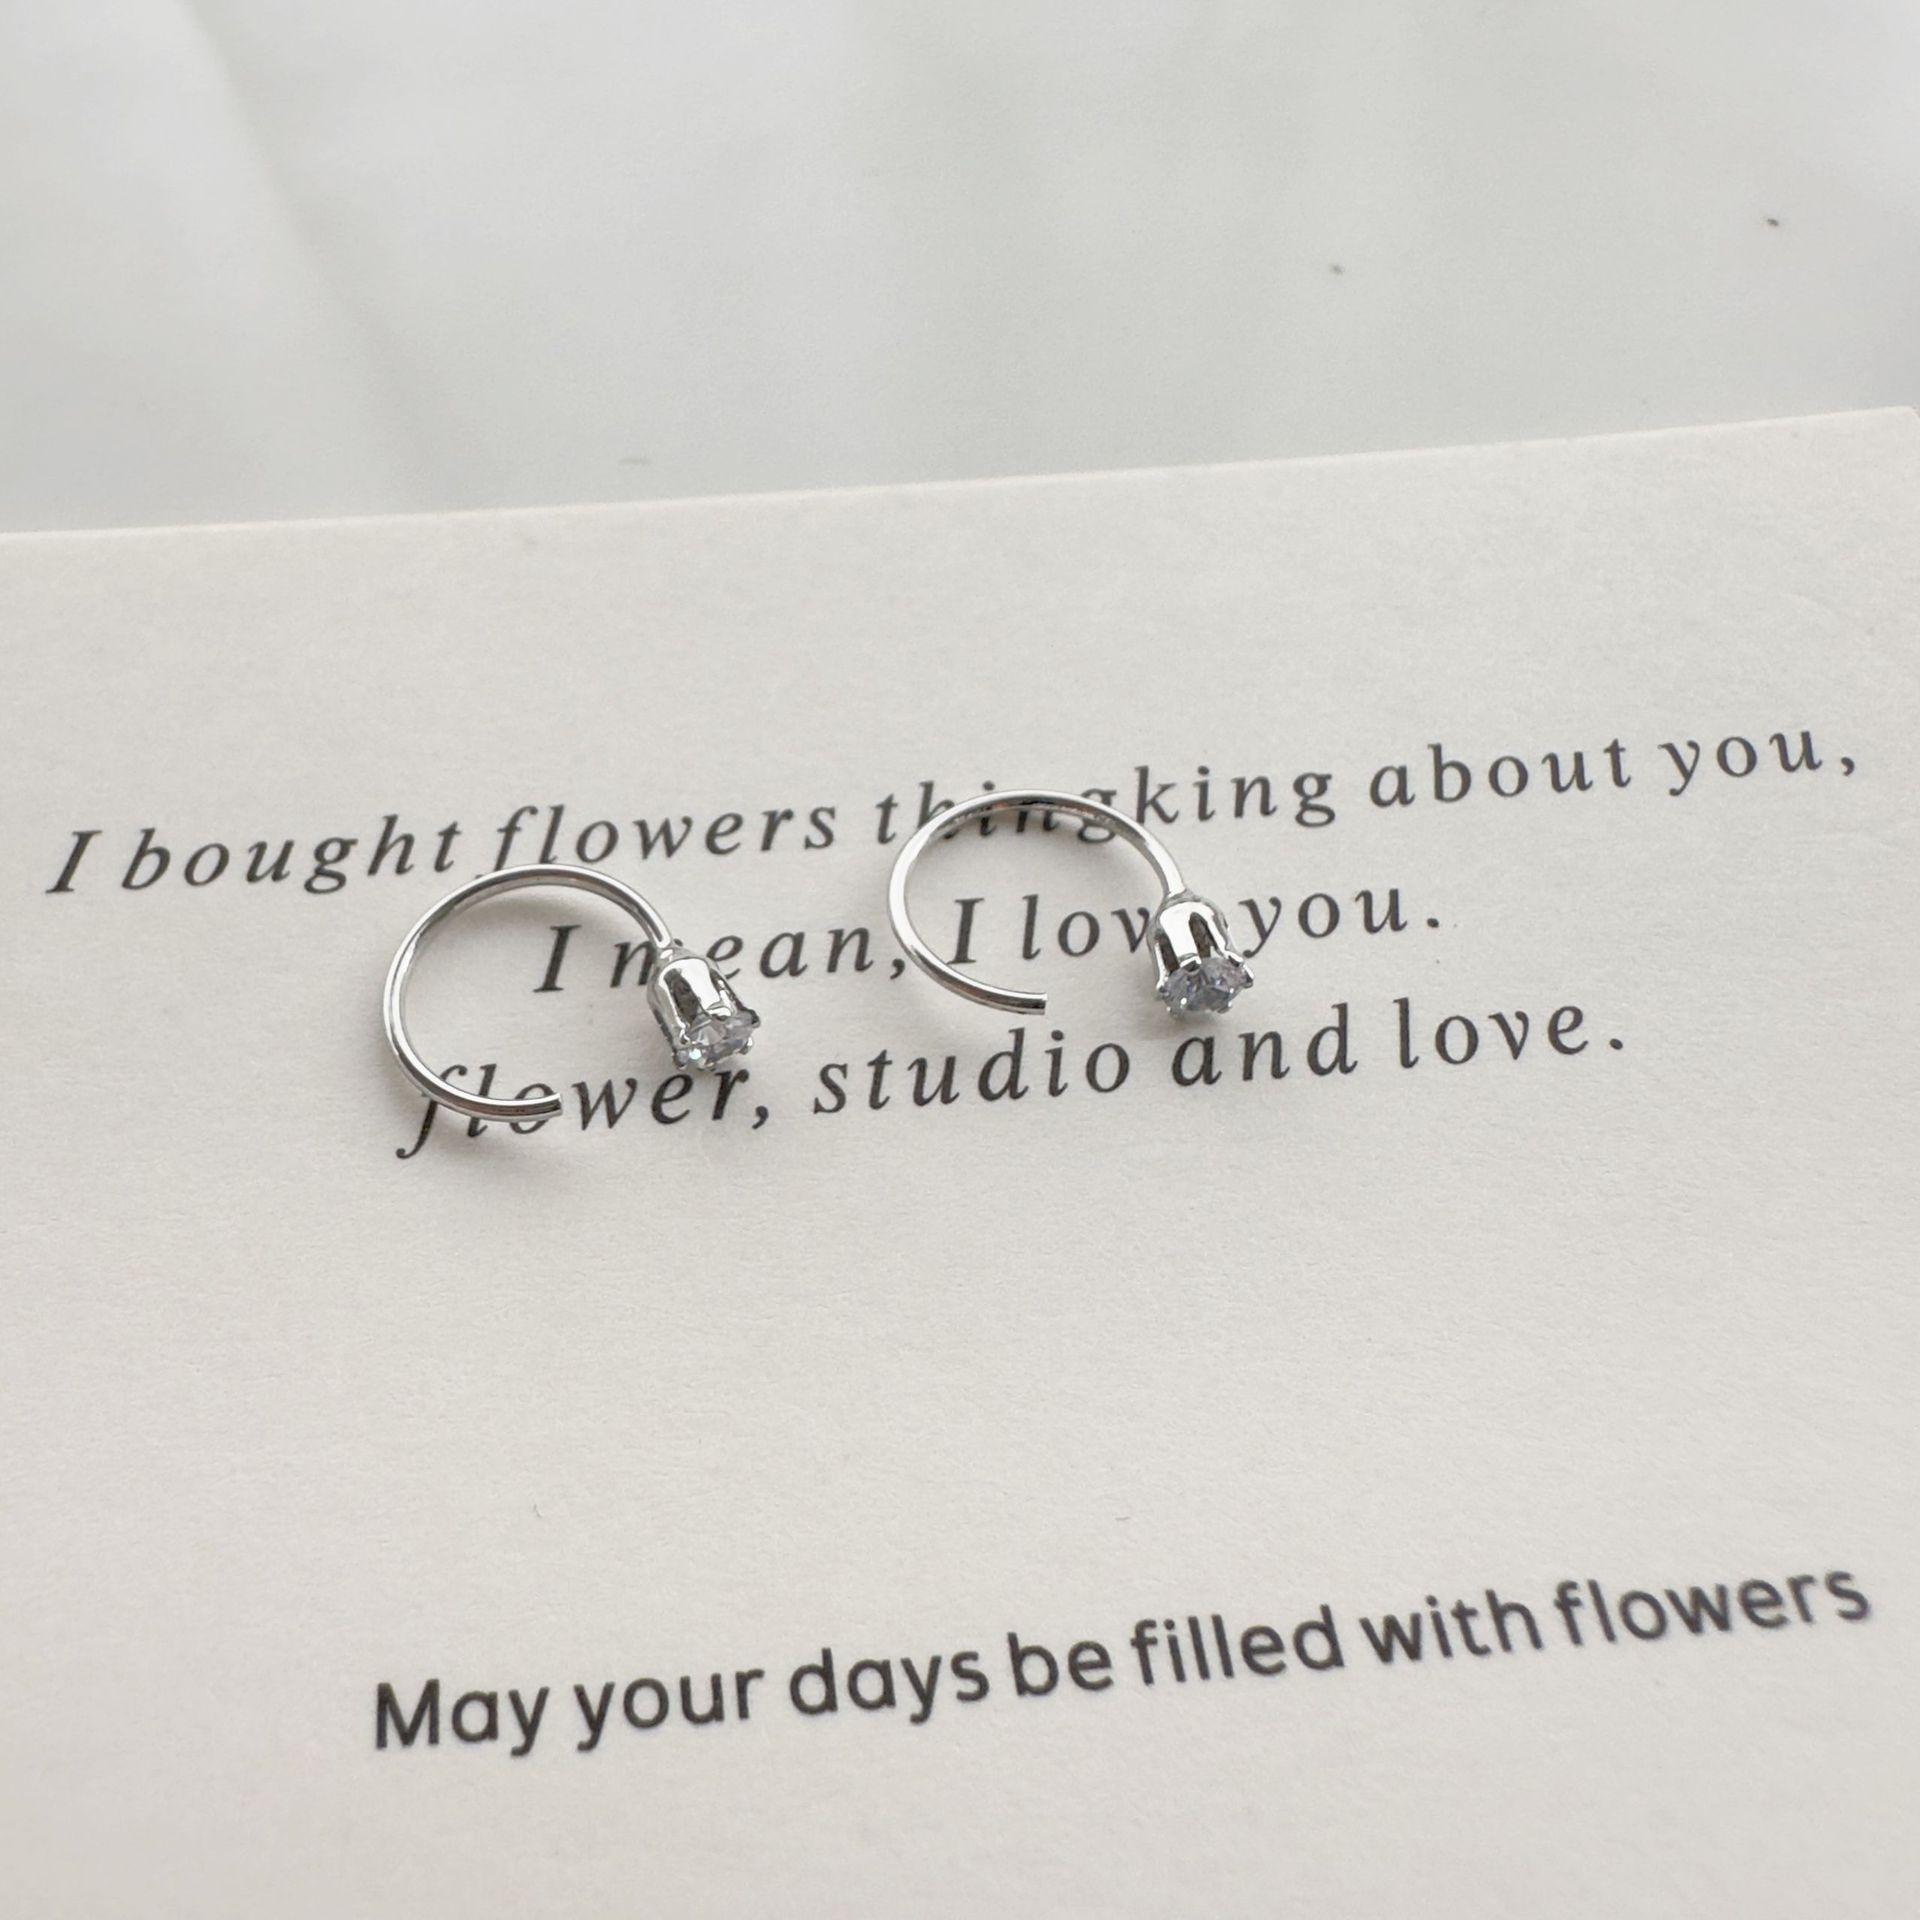 I bought flowers thingking about you,
I mean, I love you.
flower, studio and love.
May your days be filled with flowers